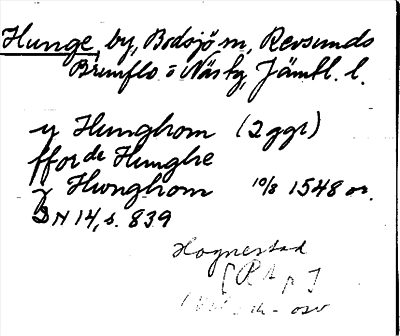 Hunge, by, Bodsjö sn, Revsunds
Brunflo o Näs tg, Jämtl. l.
y Hunghom (2 ggr)
ffor de Hunghe
y Hwnghom 10/8 1548 or.
DN 14, s. 839
Hognestad